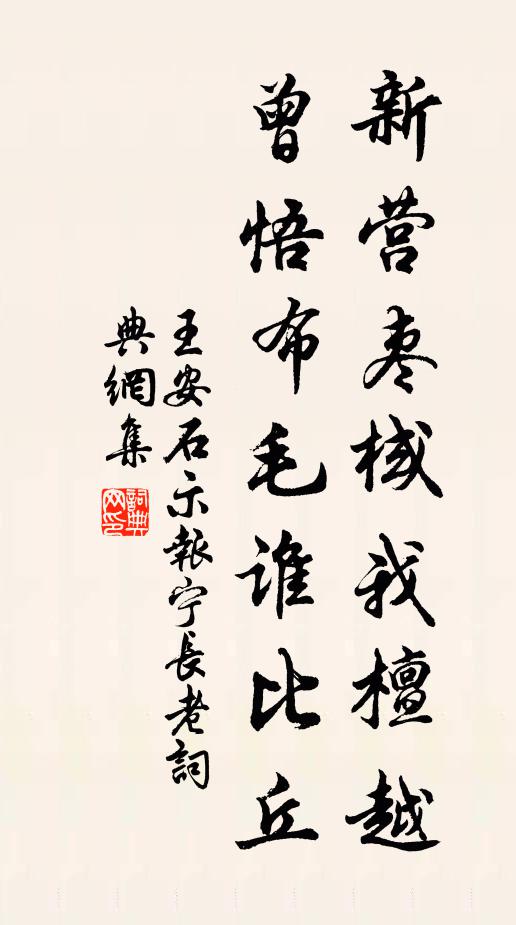 新营枣棫我檀越
曾悟布毛谁比丘
王安石示報宁長老詞
典網集
詞典
网印